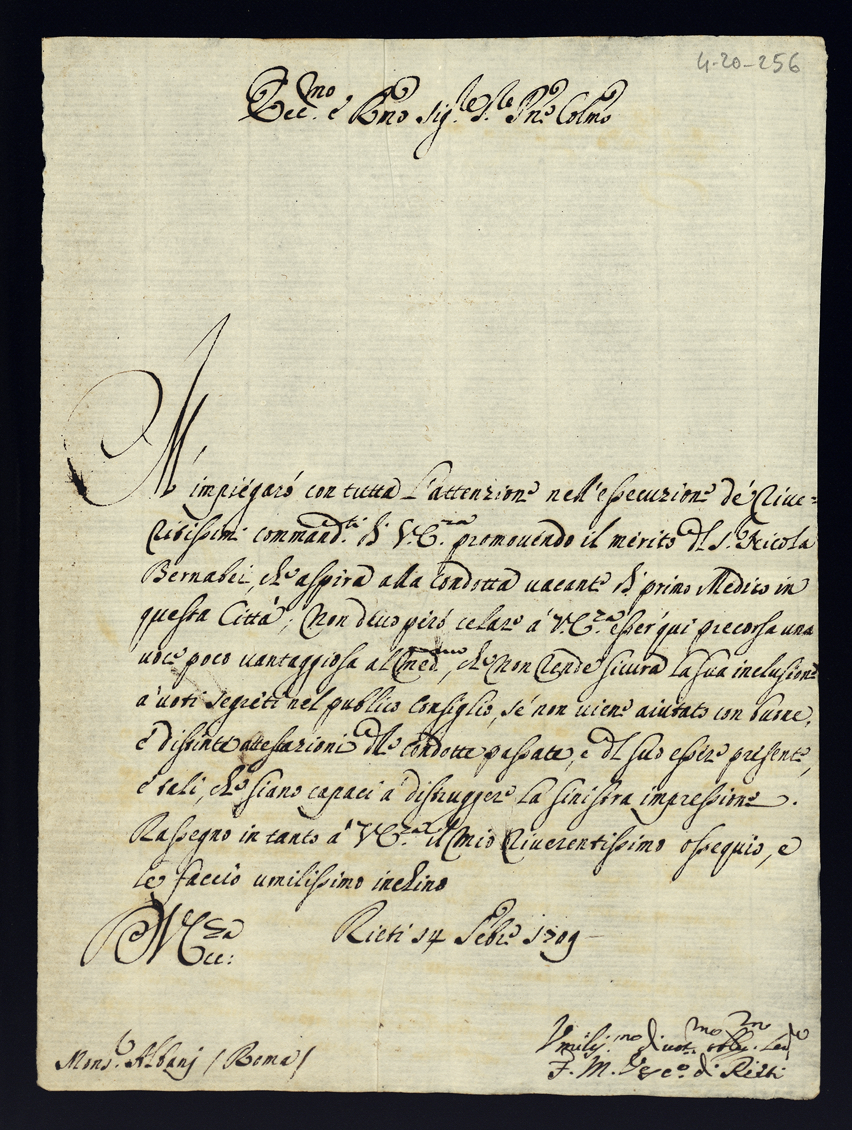 4-20-256
Ecc.mo e Rmo Sig.re S.re Pne Colmo
M' impiegarò con tutta l'attenzione nell'essecuzione de' River=
ritissimi command.ti di V.E.za promovendo il merito del S.r Nicola
Bernabei, che aspira alla condotta vacante di primo Medico in
questa Città; Non devo però celare à V.E.za esser quì precorsa una
voce poco vantaggiosa al med.mo, che non rende sicura la sua inclusione
à voti segreti nel publico Consiglio, sè non viene aiutato con buone,
e distinte attestazioni delle condotte passate, e del suo essere presente,
e tali, che siano capaci à distruggere la sinistra impressione.
Rassegno in tanto à V.E.za il mio riverentissimo ossequio, e
le faccio umilissimo inchino
Rieti 14 Febr.o 1709
V.E.za
Ecc:
Mons.r Albanj / Roma /
Umiliss.mo divot.mo obblig.mo
F. M. Vesco. di Rieti